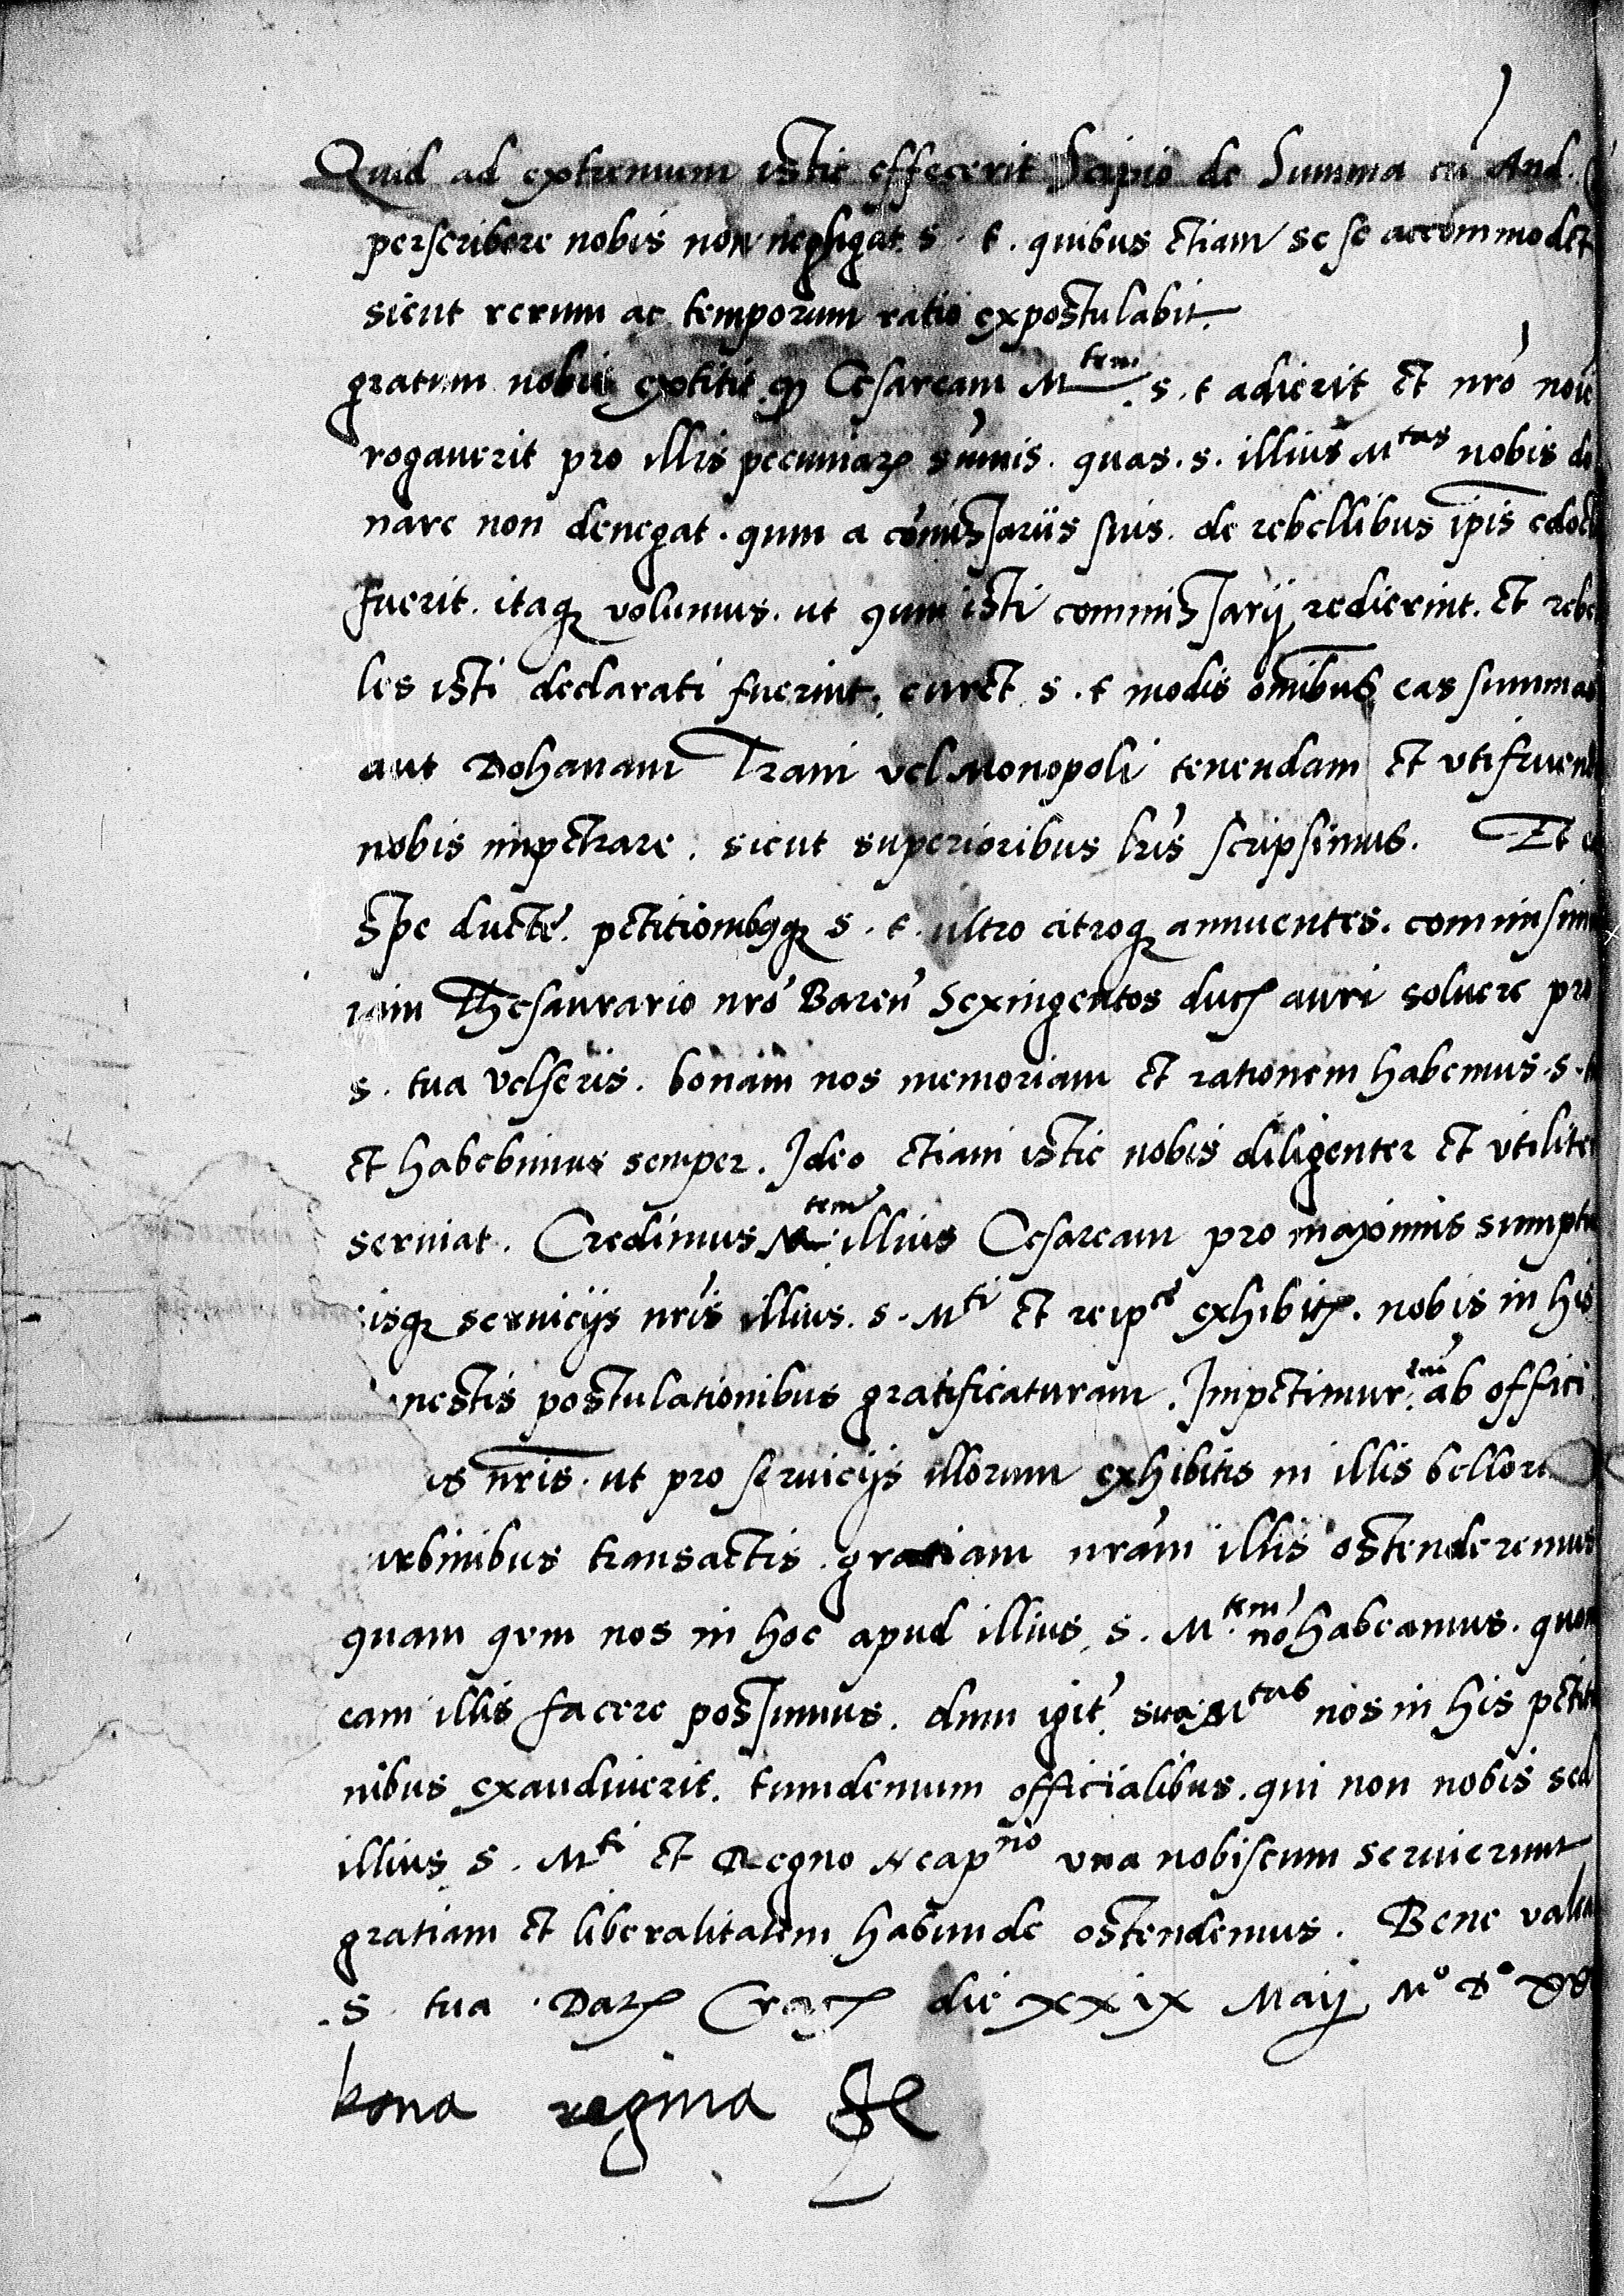 Quid ad extremum istic effecerit Scipio de Summa cu͂ And.
perscribere nobis non negligat s. t. quibus etiam se se accommodet
sicut rerum ac temporum ratio expostulabit.
gratum nobis extitit q Cesaream M^tem. s. t adierit et nr͂o
rogaverit pro illis pecuniarꝝ sum͂is. quas. s. illius M^tas nobis
nare non denegat. qum a com͂issariis suis. de rebellibus ip͂is
fuerit. itaqꝫ volumus. ut qum isti commissarij redierint. et rebe
les isti declarati fuerint. curet s. t modis om͂ibus eas summas
aut Dohanam Trani vel Monopoli tenendam et utifruend
nobis impetrare. sicut superioribus lr͂is scripsimus. Et
spe ductę. petitionibꝰqꝫ s. t. ultro citroqꝫ annuentes. commisim
iam Thesaurario nr͂o Baren͂ Sexingentos ducꝭ auri solvere pr
s. tua velseris. bonam nos memoriam et rationem habemus. s. t
et habebimus semper. Ideo etiam istic nobis diligenter et utilite
serviat. Credimus M^tem illius Cesaream pro maximis sumptu
isqꝫ servicijs nr͂is illius. s. M^ti et reip^ce exhibitꝭ. nobis in his
nestis postulationibus gratificaturam. Impetimur ab offici
s nr͂is. ut pro servicijs illorum exhibitis in illis belloru
urbinibus transactis. gratiam nr͂am illis ostenderemus
quam qum nos in hoc apud illius. s. M^tem no͂ habeamus. quom
eam illis facere possimus. dum igit͂. sua M^tas nos in his petit
nibus exaudiverit. tumdemum officialibus. qui non nobis sed
illius s. M^ti et Regno Neap^no una nobiscum servierunt
gratiam et liberalitatem habunde ostendemus. Bene valea
s. tua. Datꝭ Cracꝭ die xxix Maij M° D°
bona regina